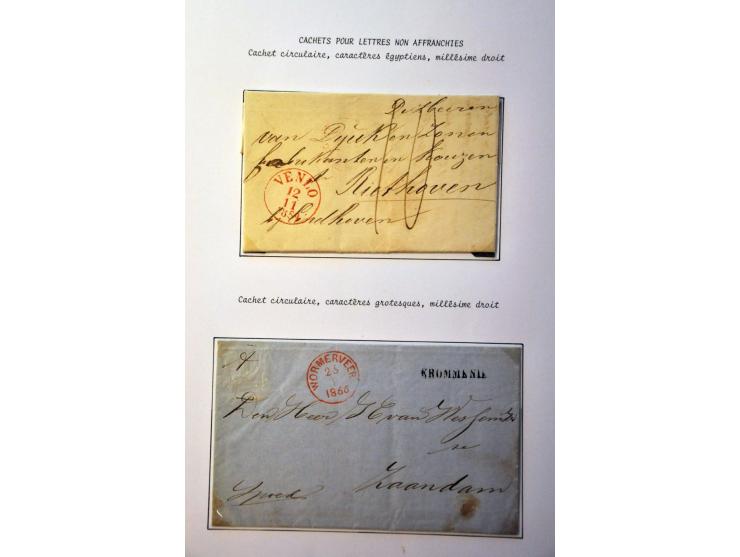 CACHETS POUR LETTRES NON AFFRANCHIES
Cachet circulaire, caractères égyptiens, millésime droit
De Heeren
van Dijck en Zonen
fabrikanten in kouzen
te
Riethoven
bij Eindhoven
10
VENLO
12
11
Cachet circulaire, caractères grotesques, millésime droit
WORMERVEER
1866
KROMMENIE
Den Heer, H van
te
Zaandam
Spoed